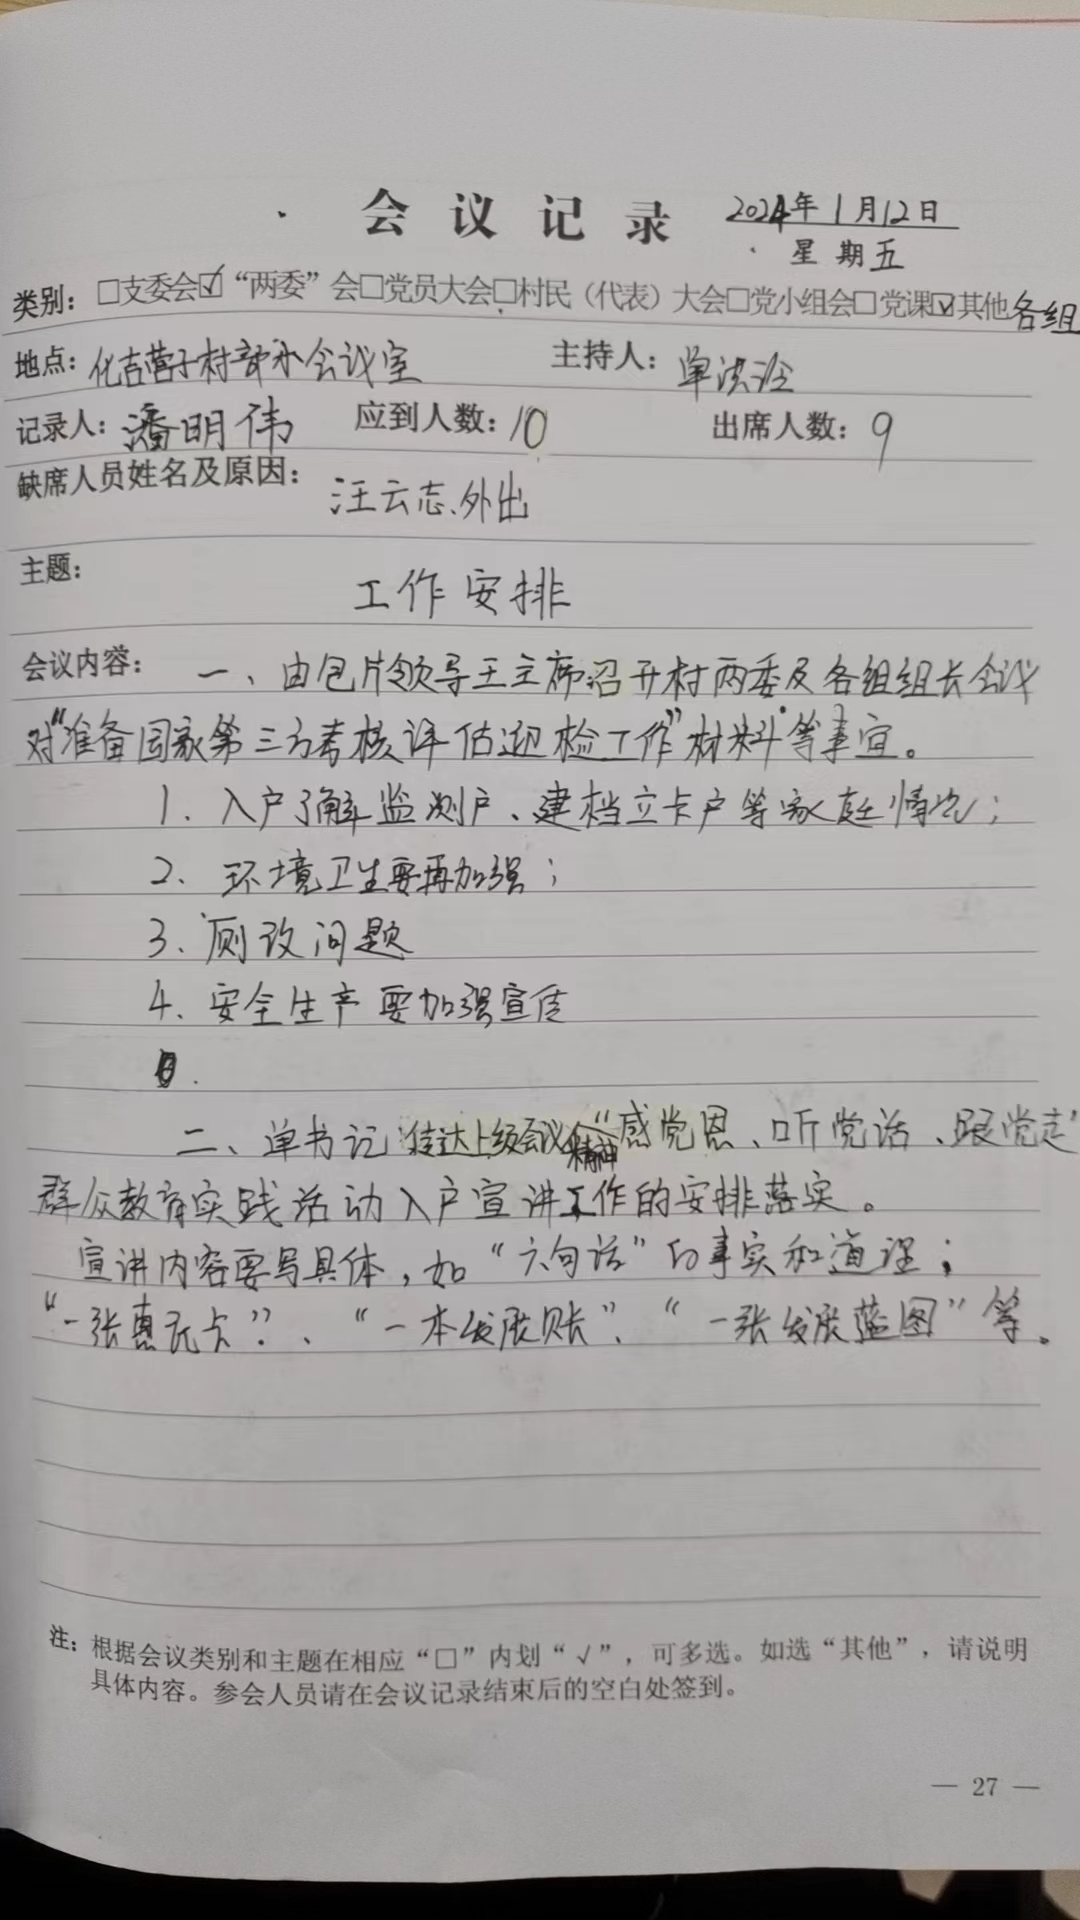 会议记录 2024年1月12日
星期五
类别：□支委会☑“两委”会□党员大会□村民（代表）大会□党小组会□党课☑其他各组
地点：化吉营子村部小会议室 主持人：单洪
记录人：潘明伟 应到人数：10 出席人数：9
缺席人员姓名及原因：汪云志、外出
主题：工作安排
会议内容：一、由包片领导王主席召开村两委及各组组长会议
对“准备国家第三方考核评估迎检工作”材料等事宜。
1、入户了解监测户、建档立卡户等家庭情况；
2、环境卫生要再加强；
3、厕改问题
4、安全生产要加强宣传
二、单书记传达上级会议精神“感党恩、听党话、跟党走”
群众教育实践活动入户宣讲工作的安排落实。
宣讲内容要写具体，如“六句话”的事实和道理；
“一张惠民卡”、“一本发展账”、“一张发展蓝图”等。
注：根据会议类别和主题在相应“□”内划“√”，可多选。如选“其他”，请说明
具体内容。参会人员请在会议记录结束后的空白处签到。
— 27 —